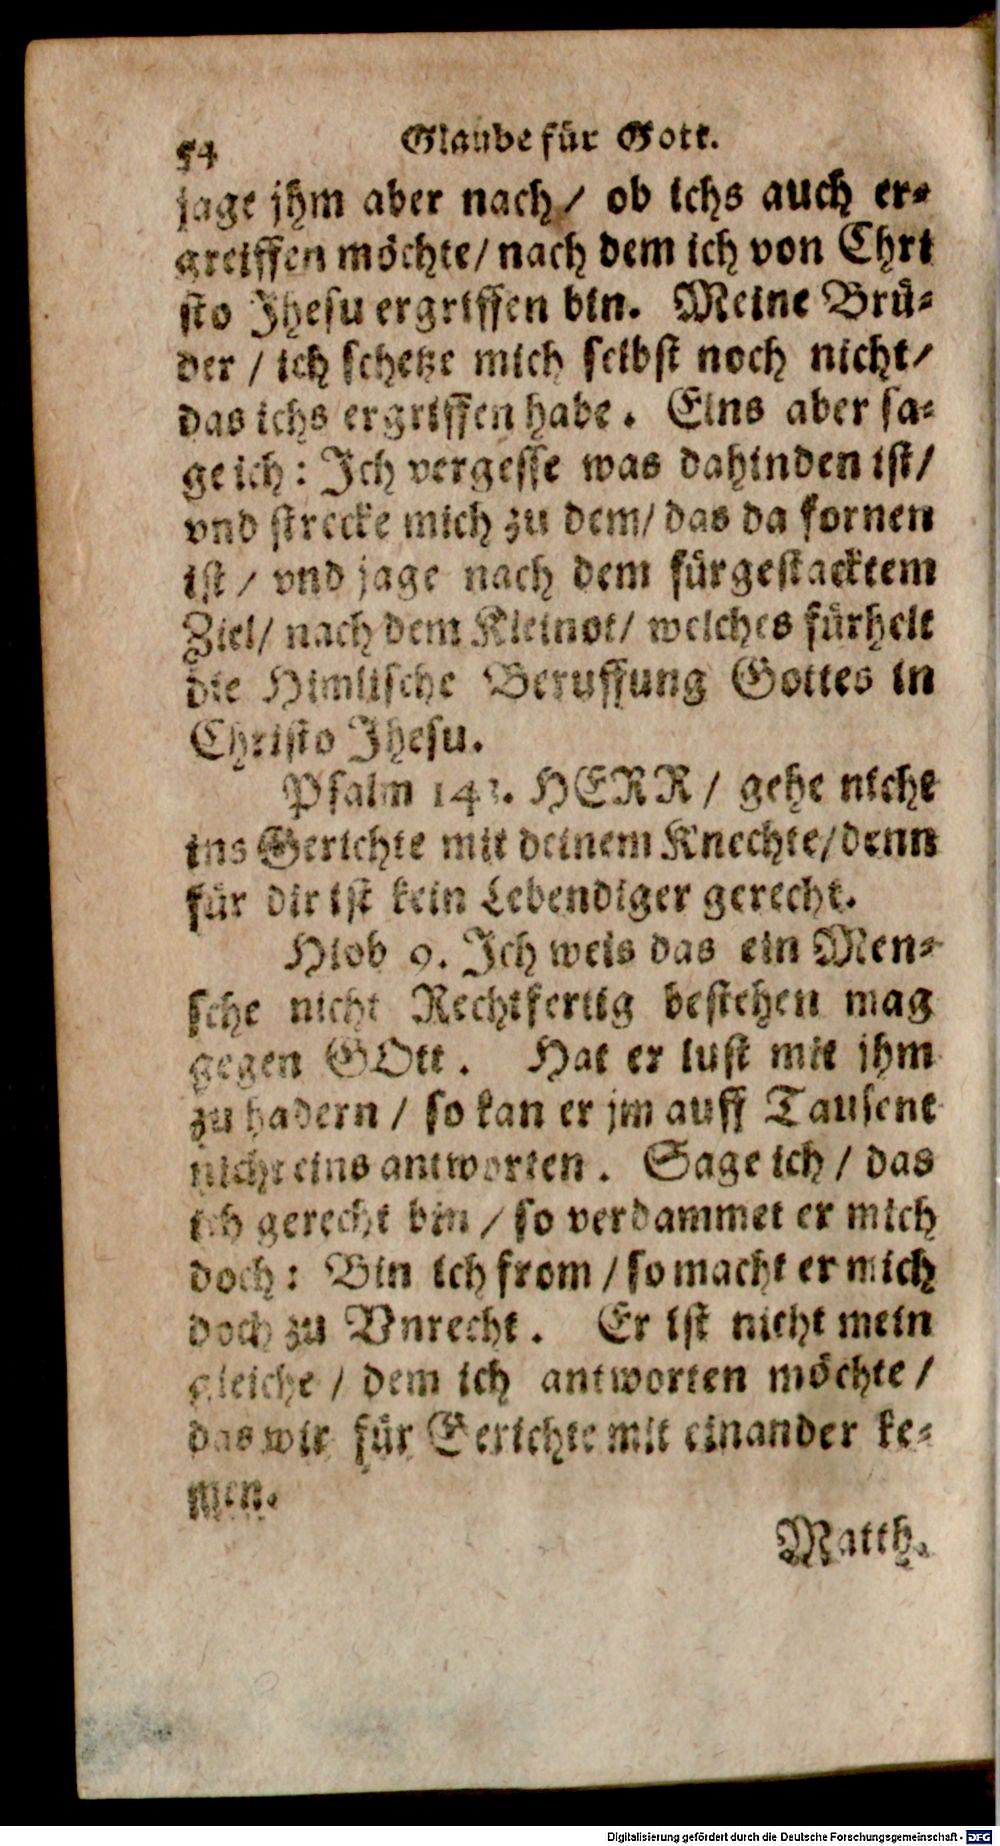 54 Glaube für Gott.
jage jhm aber nach / ob ichs auch er⸗
greiffen möchte / nach dem ich von Chri
sto Jhesu ergriffen bin. Meine Brü⸗
der / ich schetze mich selbst noch nicht /
das ichs ergriffen habe. Eins aber sa⸗
ge ich: Ich vergesse was dahinden ist /
vnd strecke mich zu dem / das da fornen
ist / vnd jage nach dem fürgestacktem
Ziel / nach dem Kleinot / welches fürhelt
die Himlische Beruffung Gottes in
Christo Jhesu.
Psalm 143. HERR / gehe nicht
ins Gerichte mit deinem Knechte / denn
für dir ist kein Lebendiger gerecht.
Hiob 9. Ich weis das ein Men⸗
sche nicht Rechtfertig bestehen mag
gegen GOtt. Hat er lust mit jhm
zu hadern / so kan er jm auff Tausent
nicht eins antworten. Sage ich / das
ich gerecht bin / so verdammet er mich
doch: Bin ich from / so macht er mich
doch zu Vnrecht. Er ist nicht mein
gleiche / dem ich antworten möchte /
das wir für Gerichte mit einander ke⸗
men.
Matth.
Digitalisierung gefördert durch die Deutsche Forschungsgemeinschaft - DFG